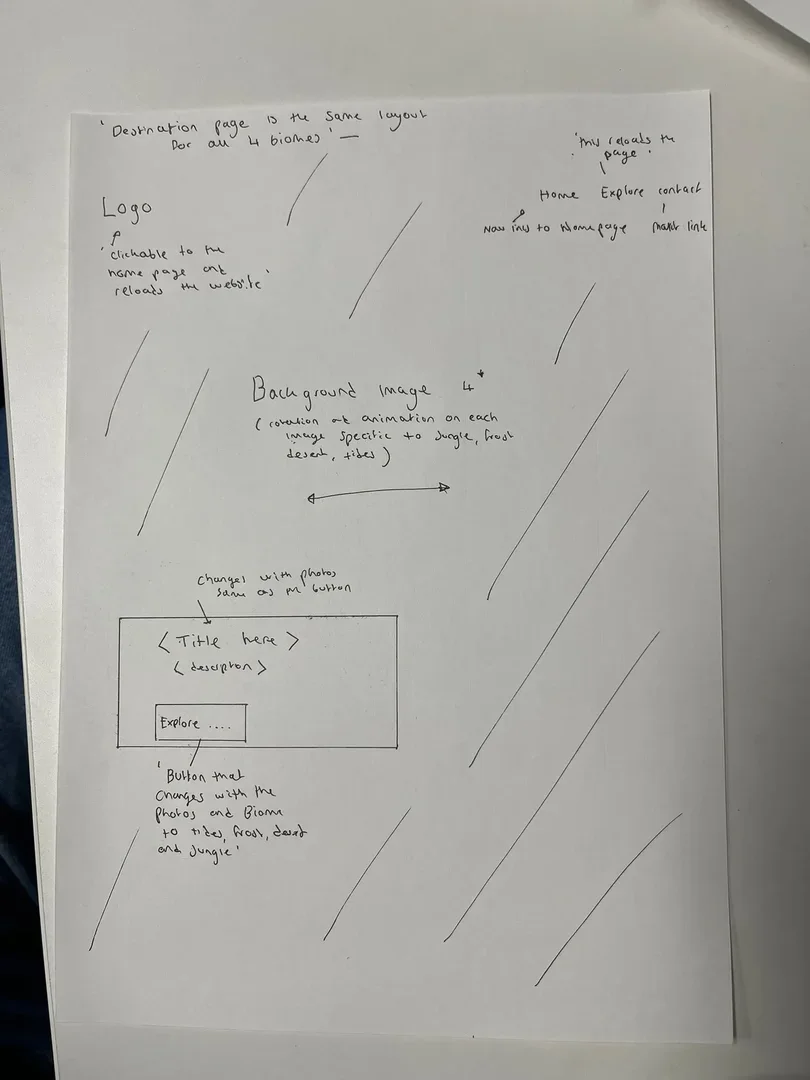 'Destination page is the same layout
for all 4 biomes' —
'this reloads the
page'
Home Explore contact
Nav links to Homepage mailto link
Logo
'clickable to the
home page and
reloads the website'
Background image 4*
(rotation and animation on each
image specific to Jungle, frost
desert, tides)
changes with photos
same as the button
<Title here>
<description>
Explore ....
'Button that
changes with the
photos and Biome
to tides, frost, desert
and Jungle'